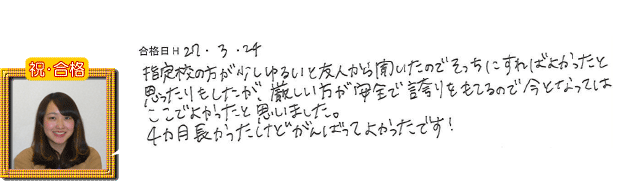 合格日 H 27・3・24
祝・合格
指定校の方が少しゆるいと友人から聞いたのでそっちにすればよかったと
思ったりもしたが、厳しい方が安全で誇りをもてるので今となっては
ここでよかったと思いました。
4カ月長かったけどがんばってよかったです!